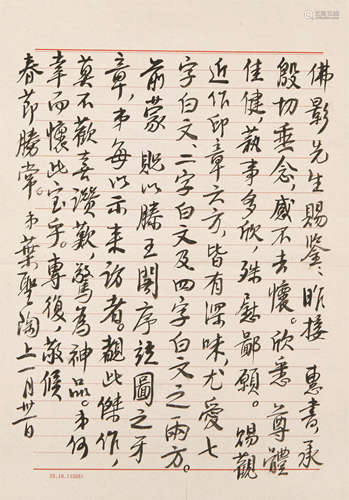 佛影先生賜鑒、昨接 惠書,承
殷切垂念,感不去懷。欣悉 尊體
佳健,執事多欣,殊慰鄙願。賜觀
近作印章六方,皆有深味,尤愛七
字白文、二字白文及四字白文之兩方。
前蒙 貺以滕王閣序 圖之牙
章,弟每以示來訪者。覩此傑作,
莫不歡喜讚歎,驚為神品。弟何
幸而懷此宝乎。專復,敬候
春節勝常。弟葉聖陶上 一月卅一日